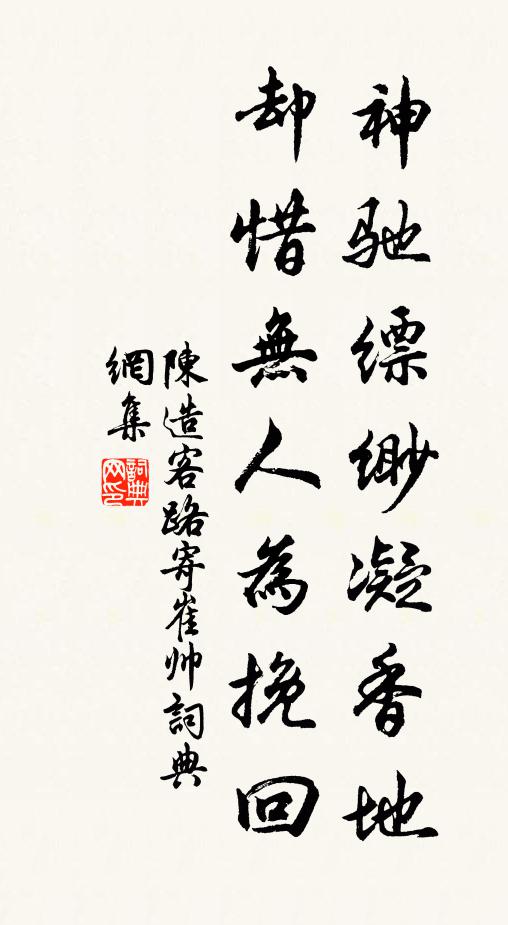 神驰缥缈凝香地
却惜無人為挽回
陳造客路寄崔帅詞典
網集
詞典网印